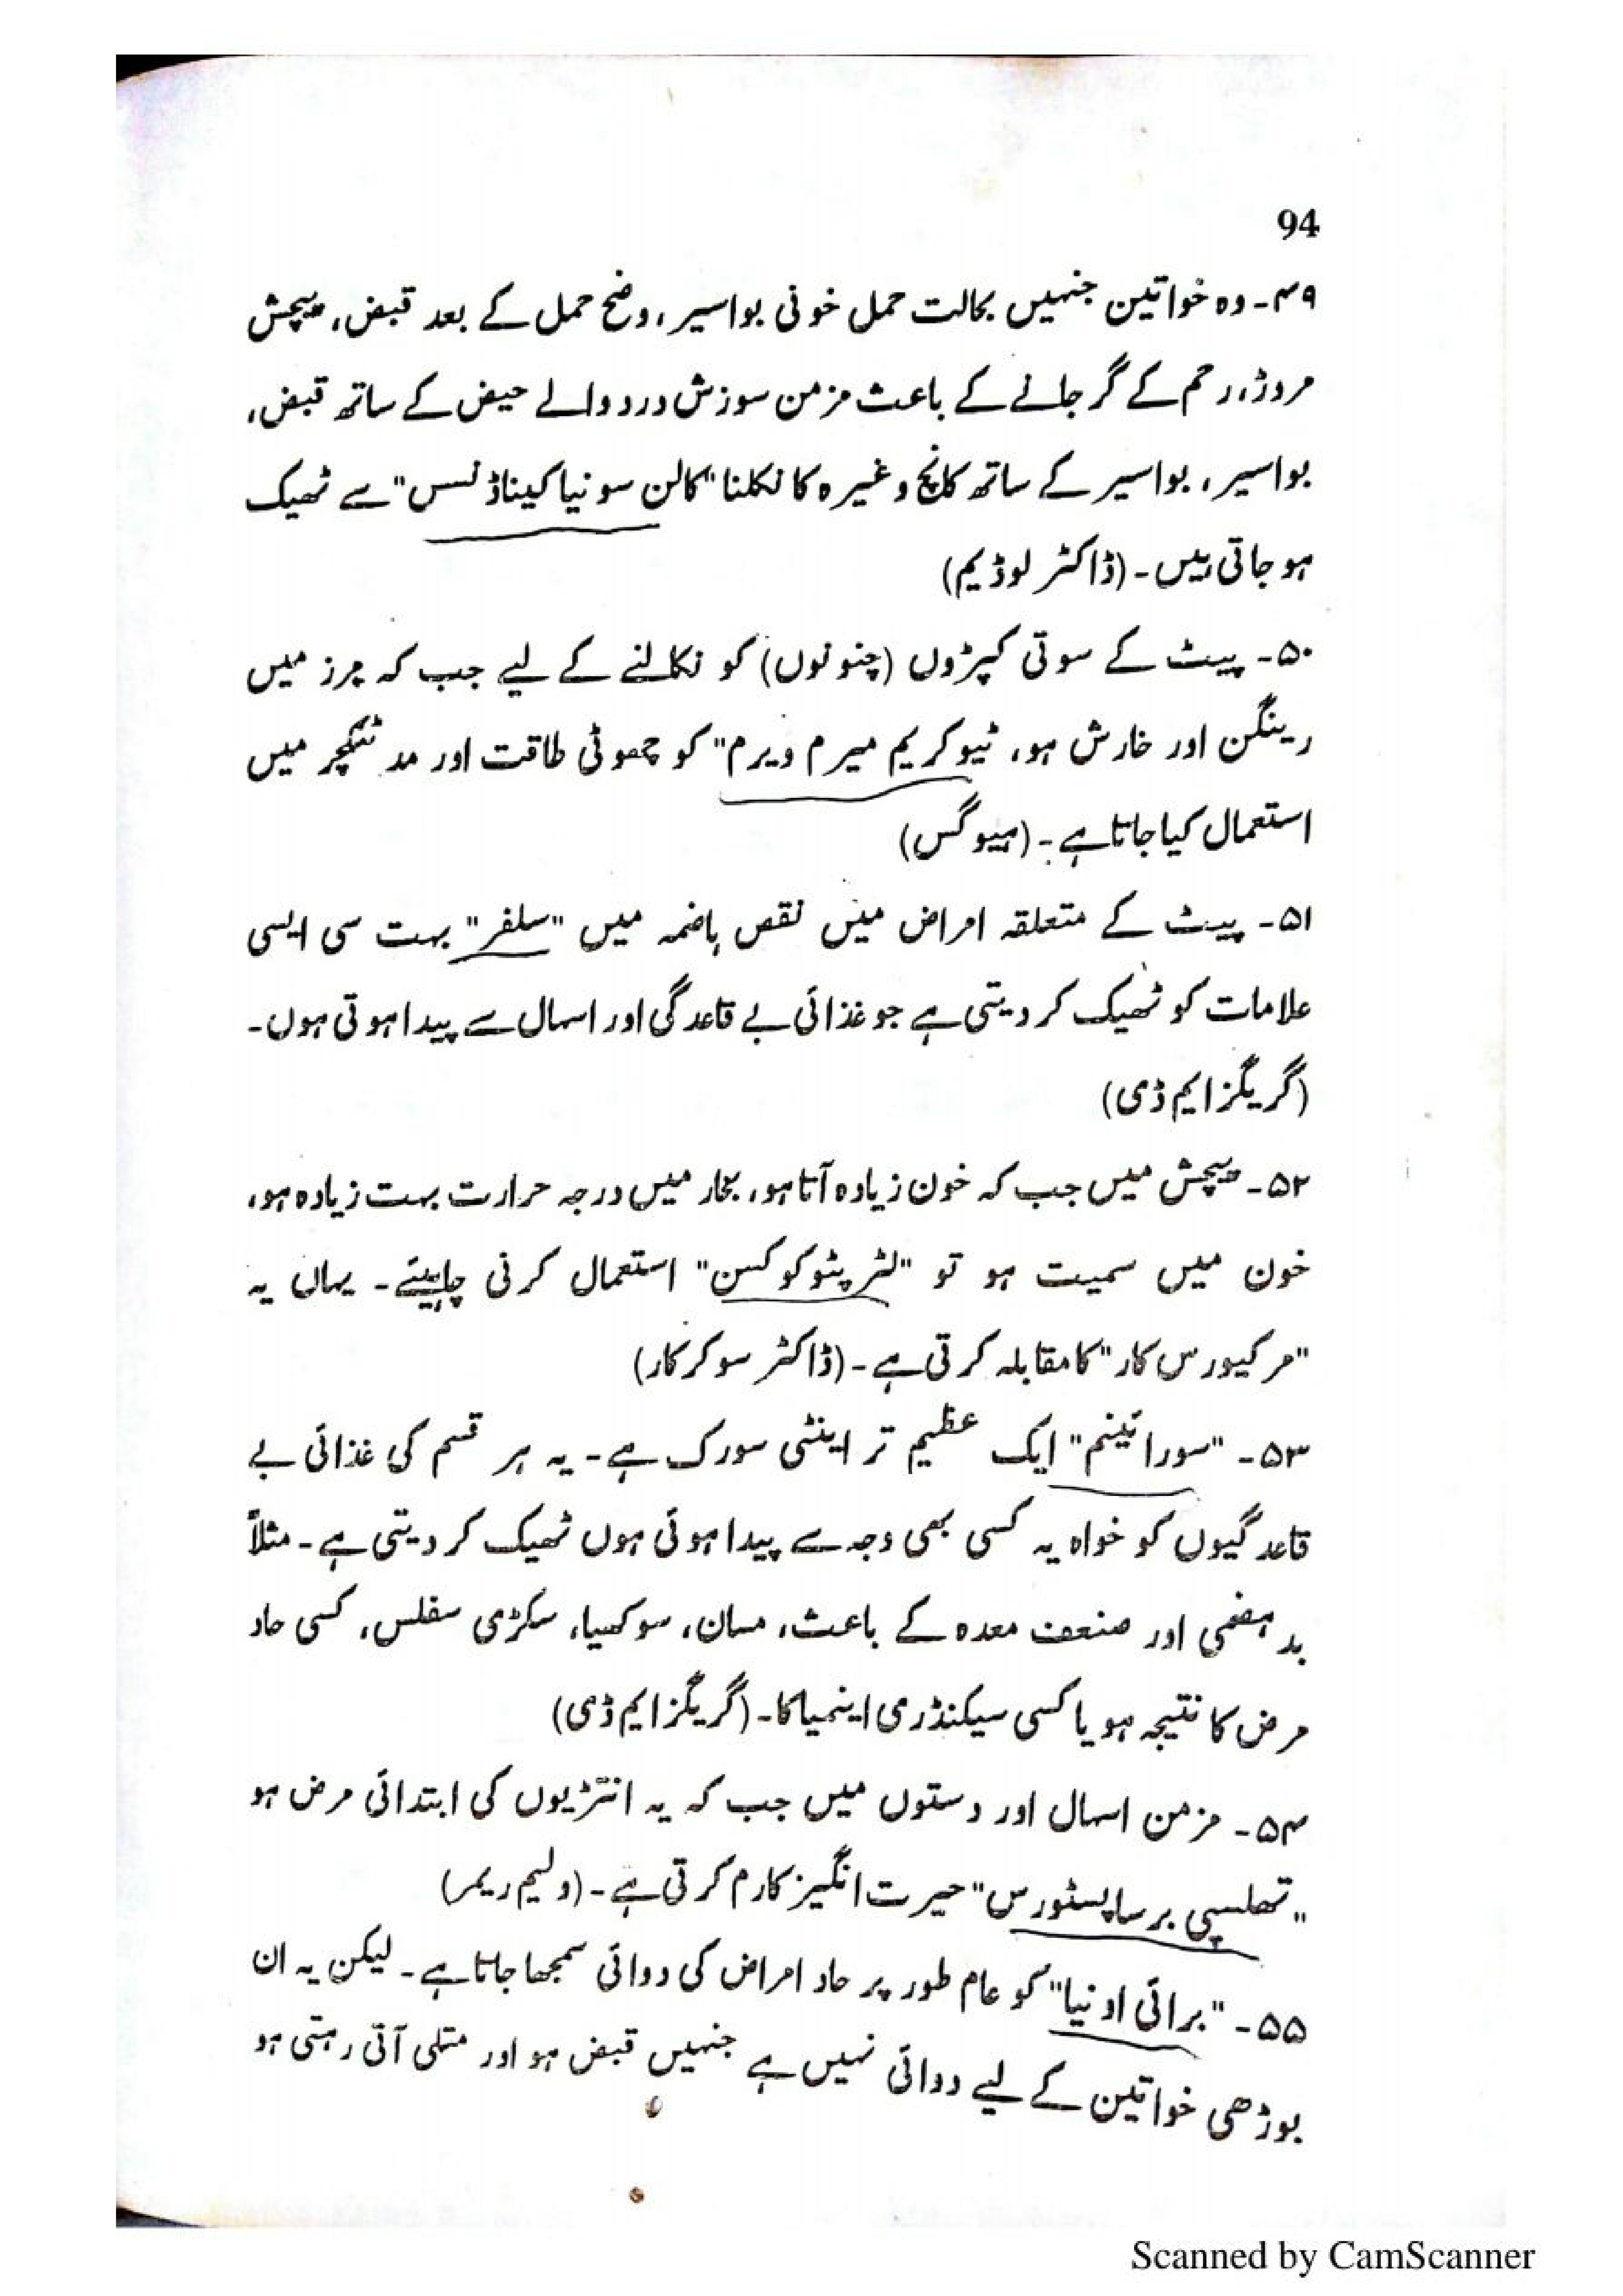 94
۴۹۔ وہ خواتین جنہیں بحالت حمل خونی بواسیر، وضع حمل کے بعد قبض، پیچش
مروڑ، رحم کے گر جانے کے باعث مزمن سوزش درد والے حیض کے ساتھ قبض،
بواسیر، بواسیر کے ساتھ کانچ وغیرہ کا نکلنا "کالن سونیا کیناڈنسس" سے ٹھیک
ہو جاتی ہیں۔ (ڈاکٹر لوڈیم)
۵۰۔ پیٹ کے سوتی کیڑوں (چنونوں) کو نکالنے کے لیے جب کہ مبرز میں
رینگن اور خارش ہو، ٹیوکریم میرم ویرم" کو چھوٹی طاقت اور مد ٹنکچر میں
استعمال کیا جاتا ہے۔ (ہیوگس)
۵۱۔ پیٹ کے متعلقہ امراض میں نقص ہاضمہ میں "سلفر" بہت سی ایسی
علامات کو ٹھیک کر دیتی ہے جو غذائی بے قاعدگی اور اسہال سے پیدا ہوتی ہوں۔
(گریگز ایم ڈی)
۵۲۔ پیچش میں جب کہ خون زیادہ آتا ہو، بخار میں درجہ حرارت بہت زیادہ ہو،
خون میں سمیت ہو تو "لٹرپٹوکوکسن" استعمال کرنی چاہیئے۔ یہاں یہ
"مرکیورس کار" کا مقابلہ کرتی ہے۔ (ڈاکٹر سوکرکار)
۵۳۔ "سورائینم" ایک عظیم تر اینٹی سورک ہے۔ یہ ہر قسم کی غذائی بے
قاعدگیوں کو خواہ یہ کسی بھی وجہ سے پیدا ہوئی ہوں ٹھیک کر دیتی ہے۔ مثلاً
بد ہضمی اور ضعف معدہ کے باعث، مسان، سوکھیا، سکڑی سفلس، کسی حاد
مرض کا نتیجہ ہو یا کسی سیکنڈری اینمیا کا۔ (گریگز ایم ڈی)
۵۴۔ مزمن اسہال اور دستوں میں جب کہ یہ انتڑیوں کی ابتدائی مرض ہو
"تھلسپی برسا پسٹورس" حیرت انگیز کارم کرتی ہے۔ (ولیم ریمر)
۵۵۔ "برائی اونیا" کو عام طور پر حاد امراض کی دوائی سمجھا جاتا ہے۔ لیکن یہ ان
بوڑھی خواتین کے لیے دوائی نہیں ہے جنہیں قبض ہو اور متلی آتی رہتی ہو
Scanned by CamScanner